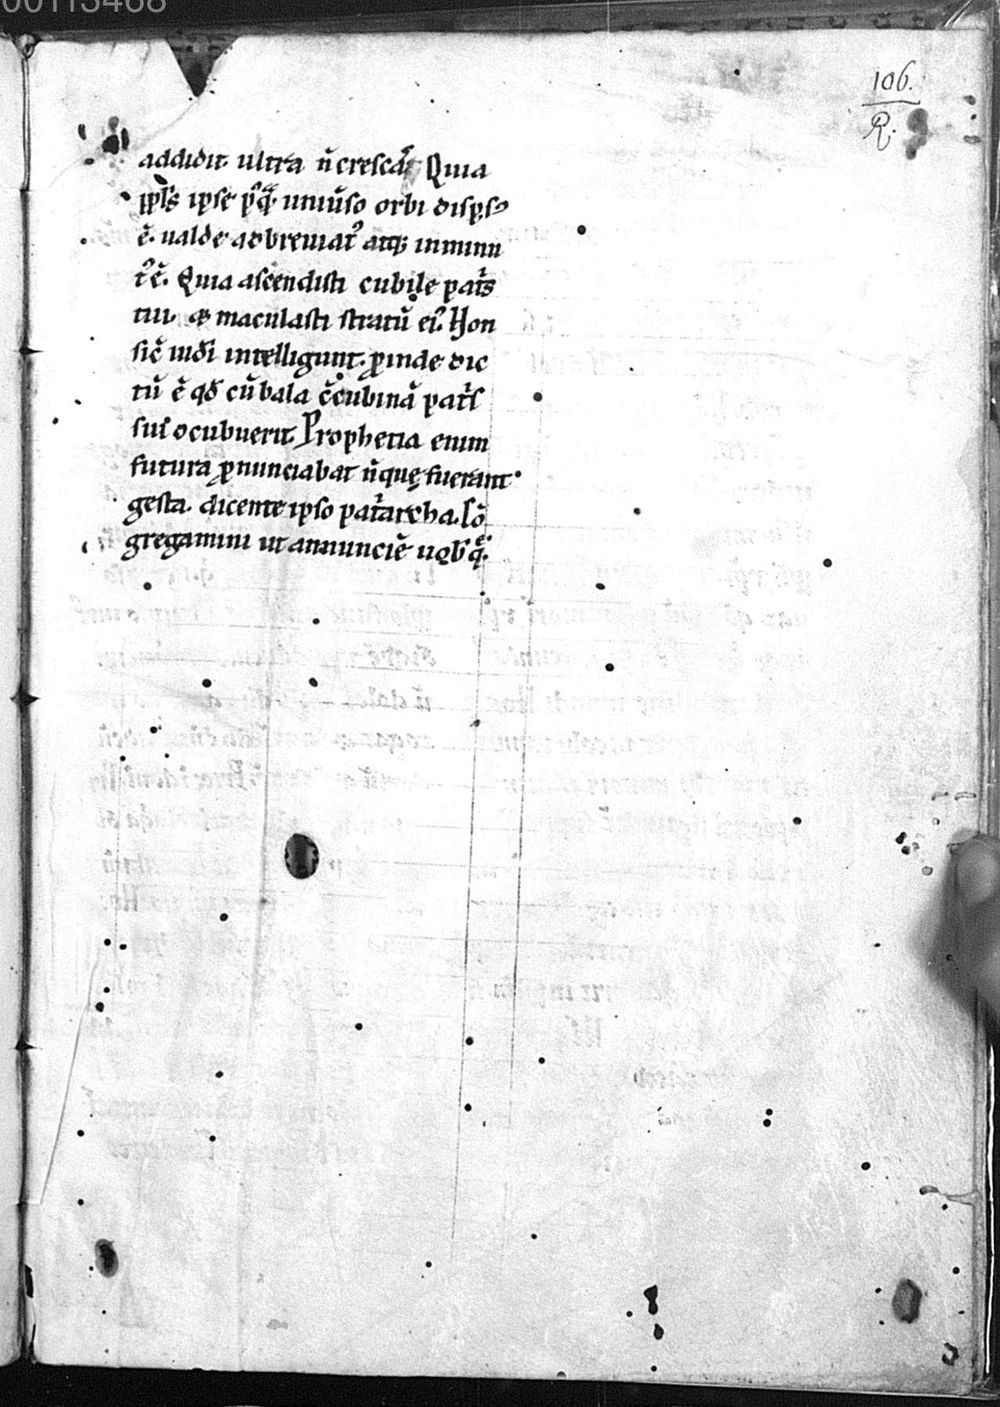 00113468
106.
R.
addidit ultra ñ crescat̃ Quia
ipse uniũso orbi disp̱s
ẽ. ualde adbreuiat᷒ atq; inminu
t᷒ ẽ. Quia ascendisti cubile patr̃s
tui. & maculasti stratũ ei᷒. Hon
sic̃ iudei intelligunt. ꝓinde dic
tũ ẽ qđ cũ bala c̃cubinã patr̃s
sui ocubuerit. Prophetia enim
futura ꝓnunciabat ñ quę fuerant
gesta. dicente ipso patriarcha. Cõ
gregamini ut annunciẽ uob̃